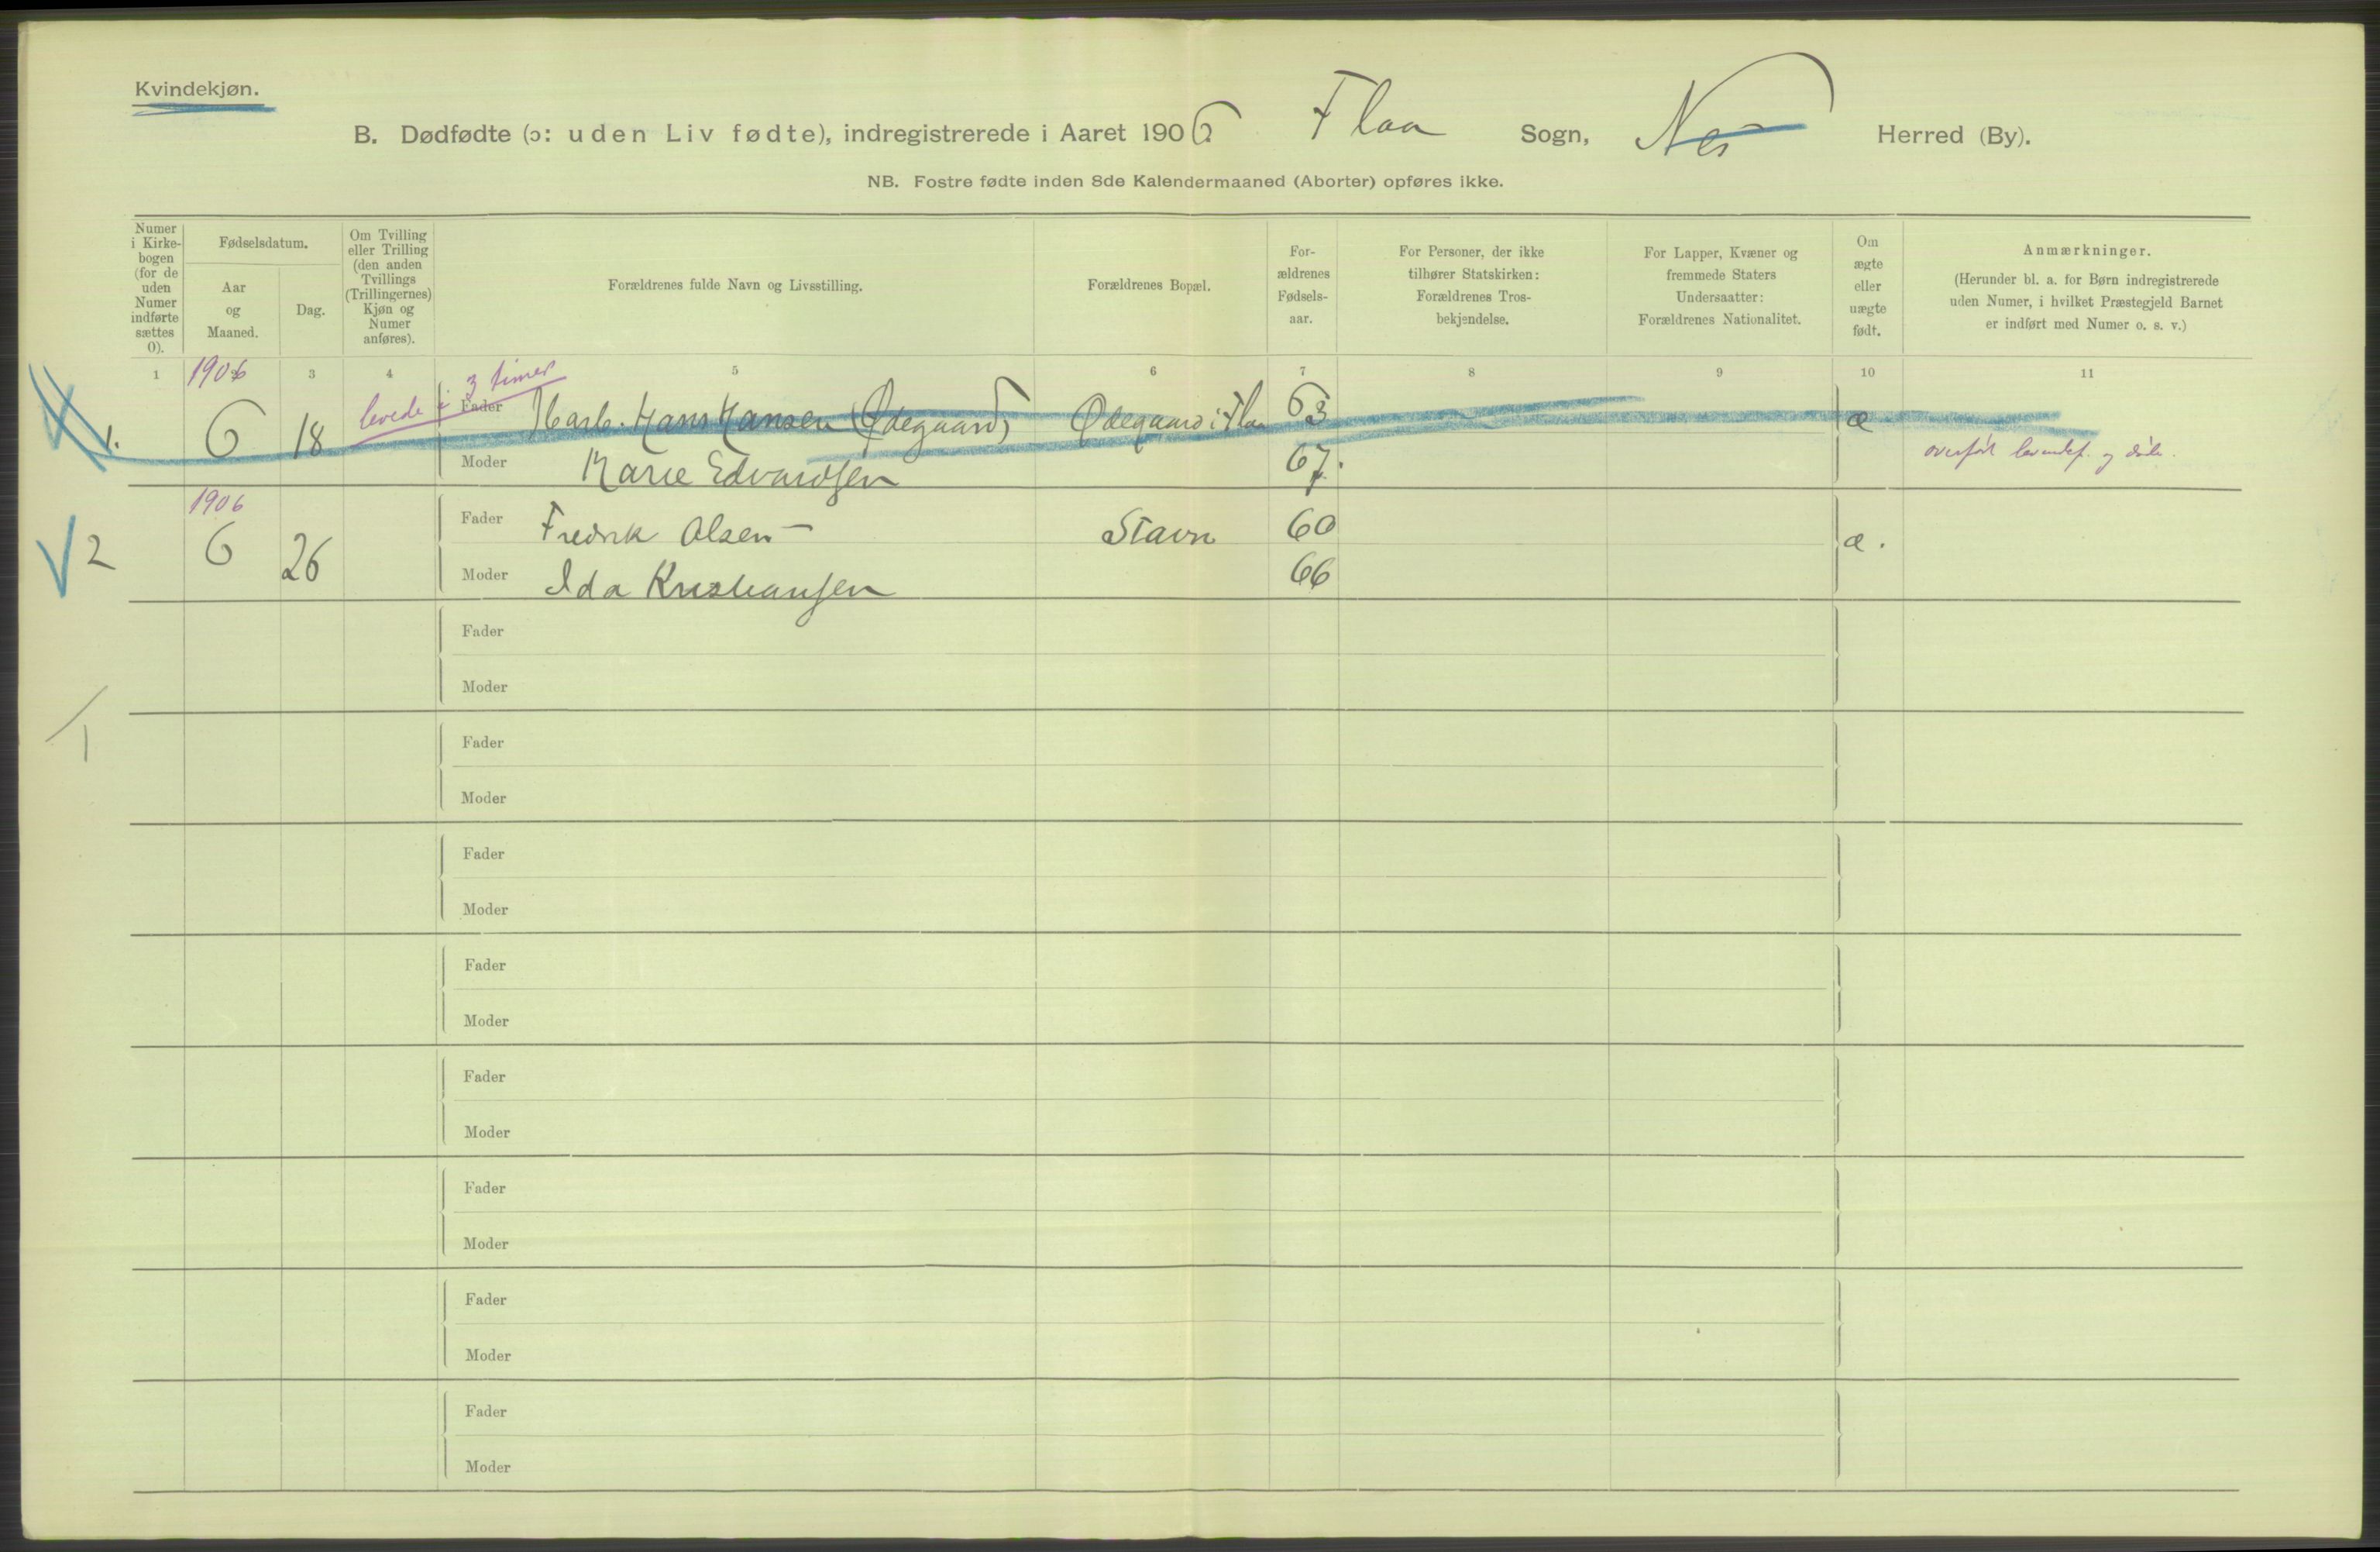 Kvindekjøn.
B. Dødfødte (ɔ: uden Liv fødte), indregistrerede i Aaret 1906. Flaa Sogn, Nes Herred (By).
NB. Fostre fødte inden 8de Kalendermaaned (Aborter) opføres ikke.
Numer i Kirke-
bogen
(for de
uden
Numer
indførte
sættes
0).
Fødselsdatum.
Aar
og
Maaned.
Dag.
Om Tvilling
eller Trilling
(den anden
Tvillings
(Trillingernes)
Kjøn og
Numer
anføres).
Forældrenes fulde Navn og Livsstilling.
Forældrenes Bopæl.
For-
ældrenes
Fødsels-
aar.
For Personer, der ikke
tilhører Statskirken:
Forældrenes Tros-
bekjendelse.
For Lapper, Kvæner og
fremmede Staters
Undersaatter:
Forældrenes Nationalitet.
Om
ægte
eller
uægte
født.
Anmærkninger.
(Herunder bl. a. for Børn indregistrerede
uden Numer, i hvilket Præstegjeld Barnet
er indført med Numer o. s. v.)
1 1906 3 4 5 6 7 8 9 10 11
levede i 3 timer
1. 6 18 Fader Hans Hansen (Ødegaard) Ødegaard i Flaa 63 æ
Moder Marie Edvardsen 67. overført levendef. og døde.
1906
2 6 26 Fader Fredrik Olsen Stavn 60 æ.
Moder Ida Kristiansen 66
Fader
Moder
1
Fader
Moder
Fader
Moder
Fader
Moder
Fader
Moder
Fader
Moder
Fader
Moder
Fader
Moder